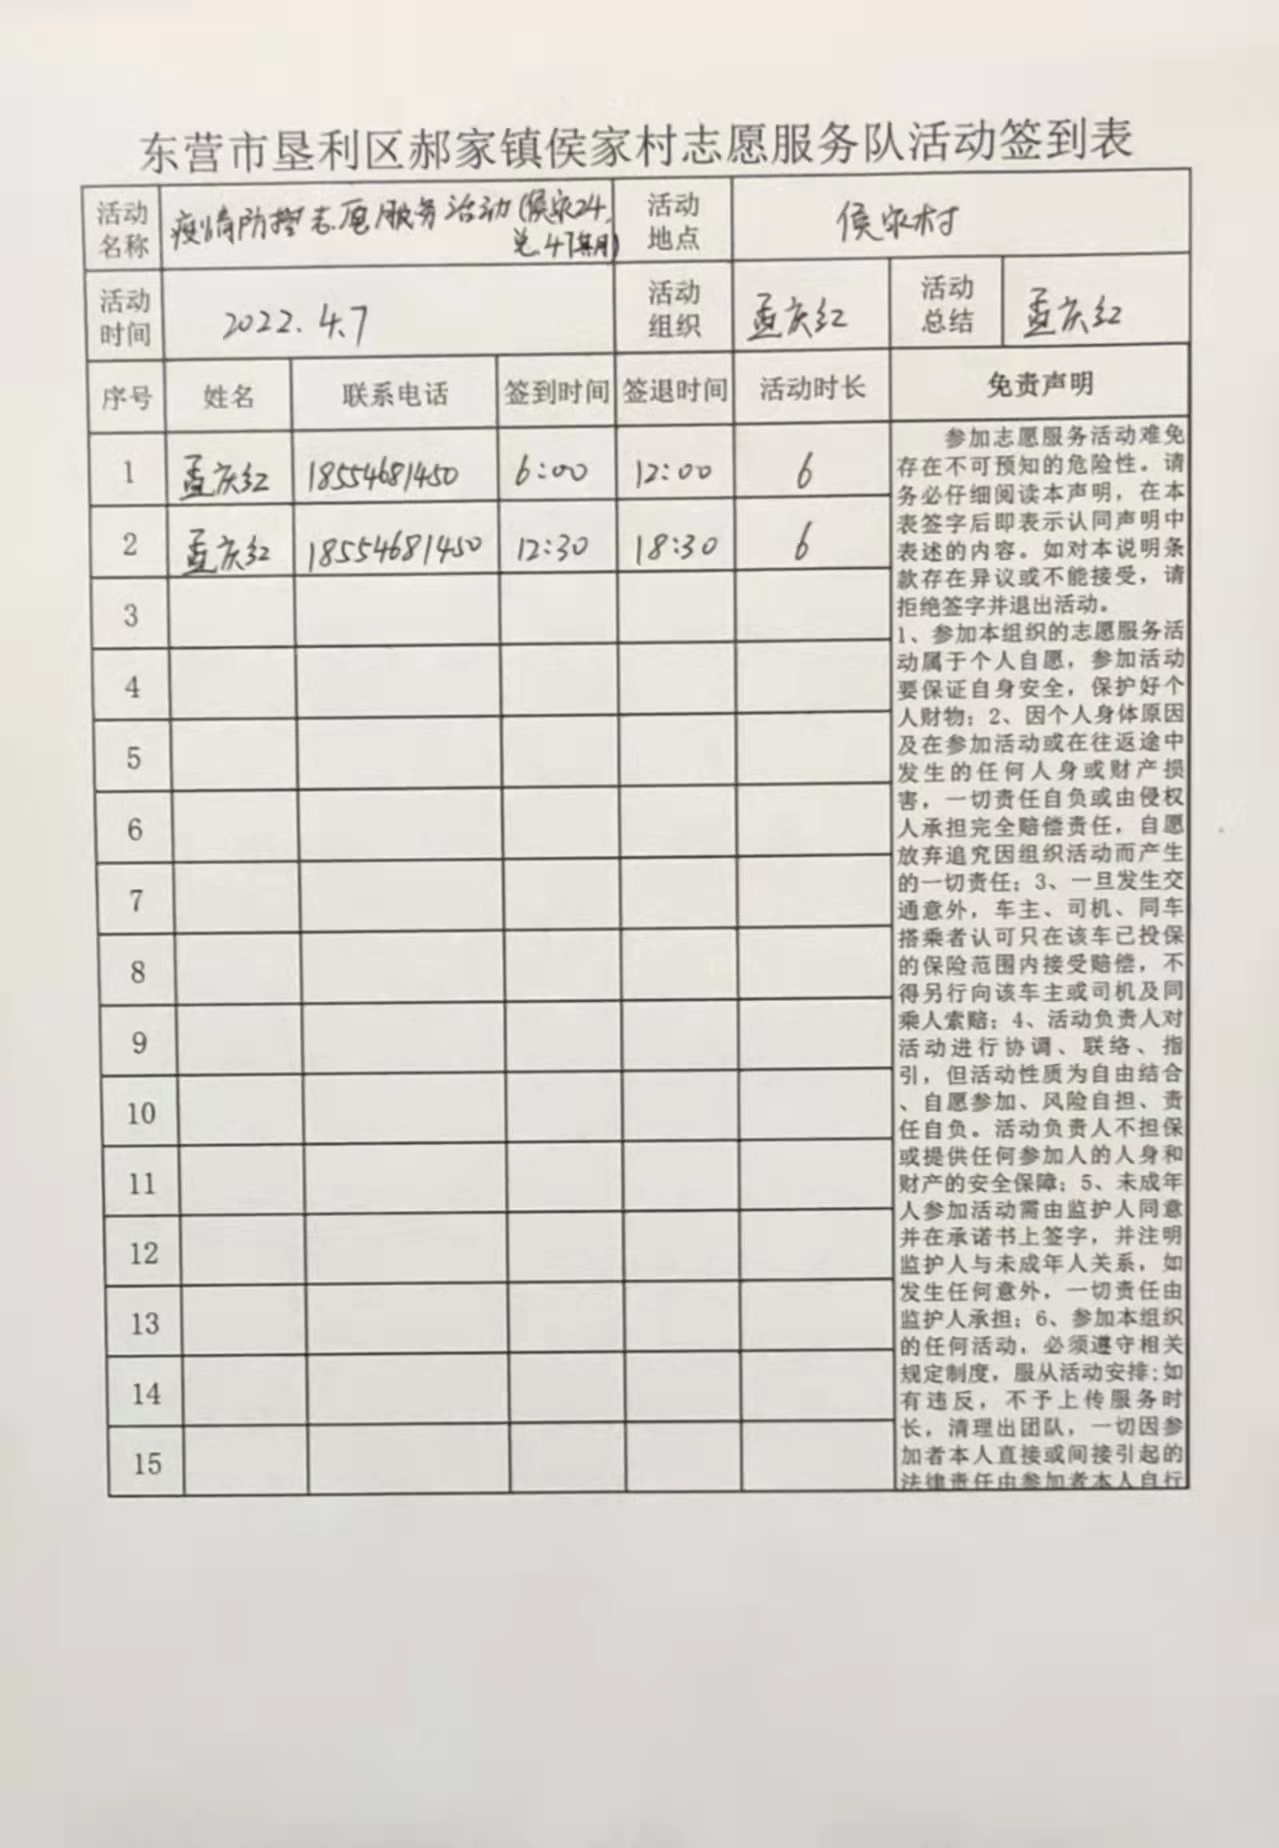 东营市垦利区郝家镇侯家村志愿服务队活动签到表
活动名称 疫情防控志愿服务活动(侯家24, 总47期) 活动地点 侯家村
活动时间 2022.4.7 活动组织 孟庆红 活动总结 孟庆红
序号 姓名 联系电话 签到时间 签退时间 活动时长 免责声明
1 孟庆红 18554681450 6:00 12:00 6
2 孟庆红 18554681450 12:30 18:30 6
3
4
5
6
7
8
9
10
11
12
13
14
15
参加志愿服务活动难免
存在不可预知的危险性。请
务必仔细阅读本声明，在本
表签字后即表示认同声明中
表述的内容。如对本说明条
款存在异议或不能接受，请
拒绝签字并退出活动。
1、参加本组织的志愿服务活
动属于个人自愿，参加活动
要保证自身安全，保护好个
人财物；2、因个人身体原因
及在参加活动或在往返途中
发生的任何人身或财产损
害，一切责任自负或由侵权
人承担完全赔偿责任，自愿
放弃追究因组织活动而产生
的一切责任；3、一旦发生交
通意外，车主、司机、同车
搭乘者认可只在该车已投保
的保险范围内接受赔偿，不
得另行向该车主或司机及同
乘人索赔；4、活动负责人对
活动进行协调、联络、指
引，但活动性质为自由结合
、自愿参加、风险自担、责
任自负。活动负责人不担保
或提供任何参加人的人身和
财产的安全保障；5、未成年
人参加活动需由监护人同意
并在承诺书上签字，并注明
监护人与未成年人关系，如
发生任何意外，一切责任由
监护人承担；6、参加本组织
的任何活动，必须遵守相关
规定制度，服从活动安排;如
有违反，不予上传服务时
长，清理出团队，一切因参
加者本人直接或间接引起的
法律责任由参加者本人自行